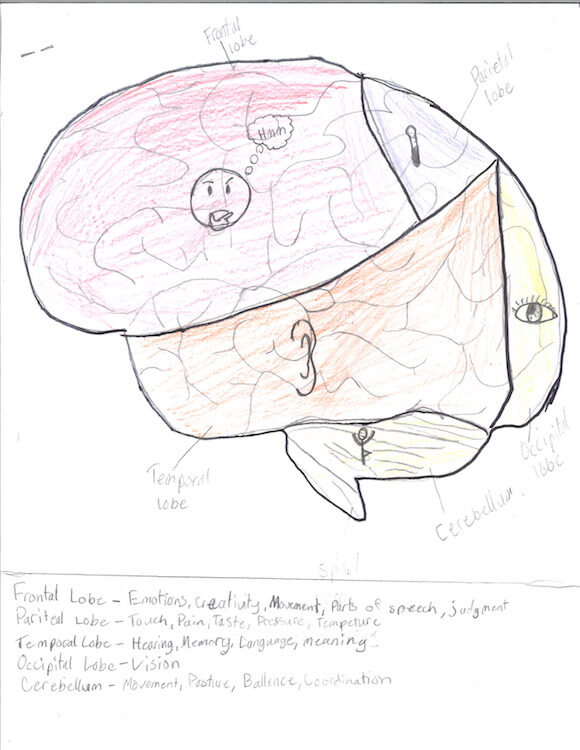 Frontal
lobe
Parietal
lobe
Hmm
Temporal
lobe
Occipital
lobe
Cerebellum.
Spinal
Frontal Lobe - Emotions, Creativity, Movement, Parts of speech, judgment
Pariteal Lobe - Touch, Pain, Taste, Pressure, Tempeture
Temporal Lobe - Hearing, Memory, Language, meaning
Occipital Lobe - Vision
Cerebellum - Movement, Posture, Ballence, Coordination